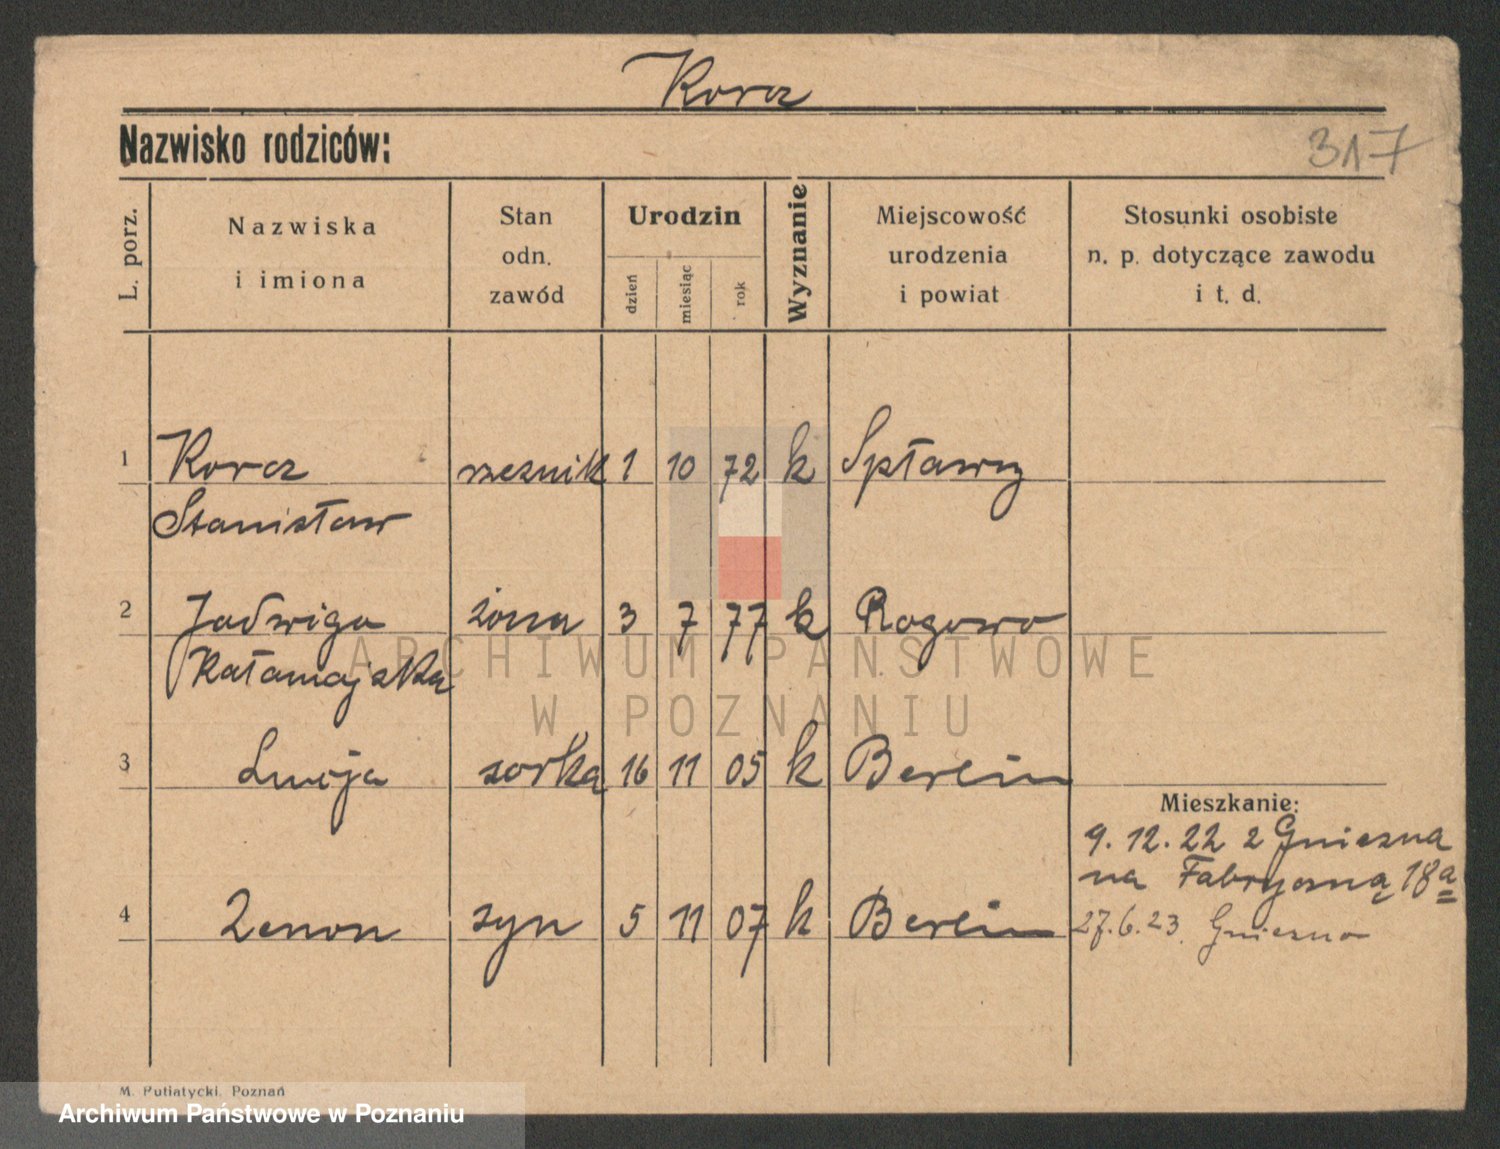 Korcz
Nazwisko rodziców:
317
L. porz.
Nazwiska
i imiona
Stan
odn.
zawód
Urodzin
dzień
miesiąc
rok
Wyznanie
Miejscowość
urodzenia
i powiat
Stosunki osobiste
n. p. dotyczące zawodu
i t. d.
1 Korcz rzeznik 1 10 72 k Spławy
Stanisław
2 Jadwiga żona 3 7 77 k Rogowo
Ratamajska
ARCHIWUM PAŃSTWOWE
W POZNANIU
3 Lucja corka 16 11 05 k Berlin
Mieszkanie:
9. 12. 22 z Gniezna
na Fabryczną 18a
4 Zenon syn 5 11 07 k Berlin
27. 6. 23. Gniezno
M. Putiatycki. Poznań
Archiwum Państwowe w Poznaniu